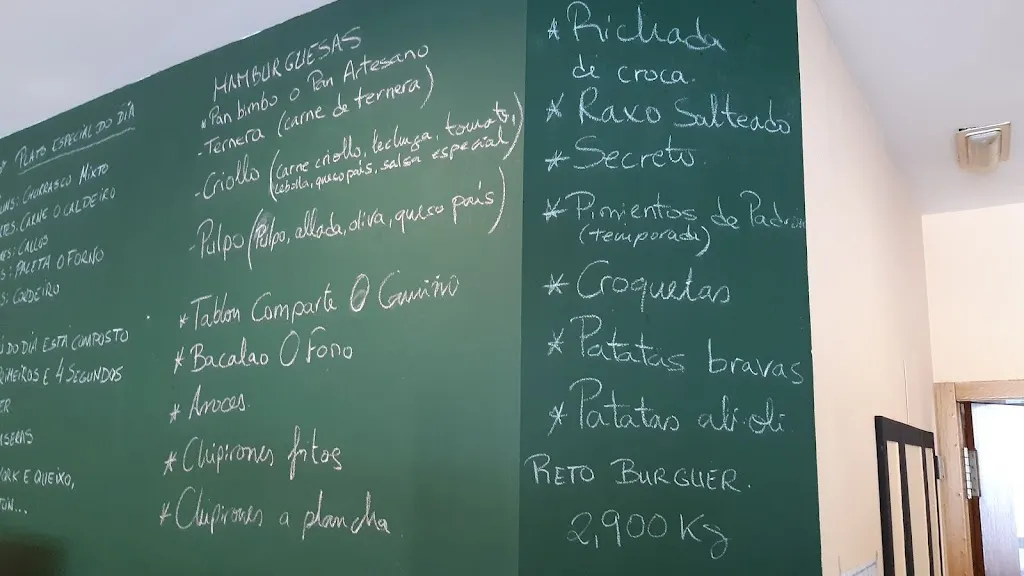 PLATO ESPECIAL DO DÍA
CHURRASCO MIXTO
CARNE O CALDEIRO
CALLO
PALETA O FORNO
CORDEIRO
DO DIA ESTÁ COMPOSTO
E 4 SEGUNDOS
E QUEIXO,
HAMBURGUESAS
Pan bimbo o Pan Artesano
- Ternera (carne de ternera)
- Criollo (carne criollo, lechuga, tomate,
cebolla, queso país, salsa especial)
- Pulpo (Pulpo, allada, oliva, queso país)
* Tablon Comparte O Camiño
* Bacalao O Forno
* Arroces
* Chipirones fritos
* Chipirones a plancha
* Richada
di croca.
* Raxo Salteado
* Secreto.
* Pimientos de Padrón
(temporada)
* Croquetas
* Patatas bravas
* Patatas alioli
RETO BURGUER.
2,900 Kg